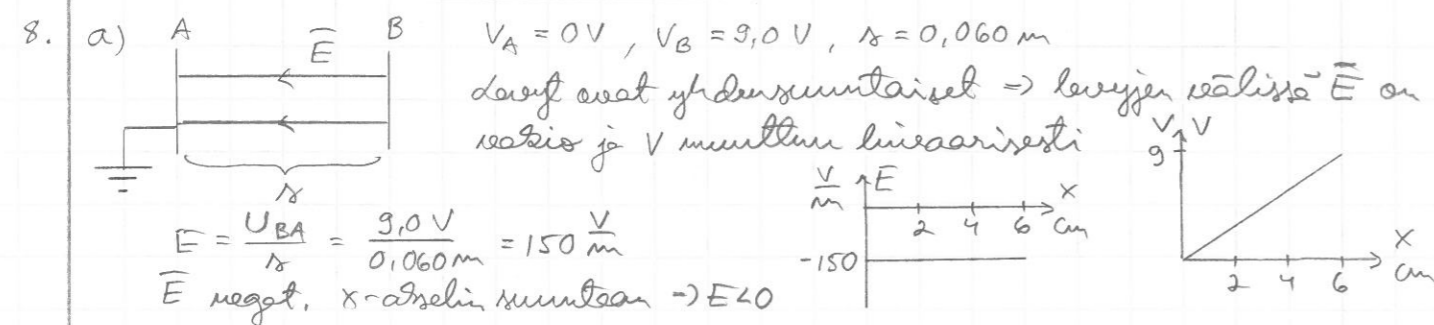 8. a) A E̅ B V_A = 0 V , V_B = 9,0 V , s = 0,060 m
Levyt ovat yhdensuuntaiset => levyjen välissä E̅ on
vakio ja V muuttuu lineaarisesti
s
E = U_BA / s = 9,0 V / 0,060 m = 150 V/m
E̅ negat. x-akselin suuntaan => E<0
V/m E x
2 4 6 cm
-150
V V
9
x
2 4 6 cm